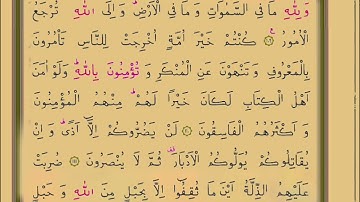 وَ لِلّٰهِ مَا فِي السَّمٰوَاتِ وَ مَا فِي الْاَرْضِ وَ اِلَى اللّٰهِ تُرْجَعُ
الْاُمُورُ ۝ كُنْتُمْ خَيْرَ اُمَّةٍ اُخْرِجَتْ لِلنَّاسِ تَاْمُرُونَ
بِالْمَعْرُوفِ وَ تَنْهَوْنَ عَنِ الْمُنْكَرِ وَ تُؤْمِنُونَ بِاللّٰهِ وَلَوْ اٰمَنَ
اَهْلُ الْكِتَابِ لَكَانَ خَيْرًا لَهُمْ مِنْهُمُ الْمُؤْمِنُونَ
وَ اَكْثَرُهُمُ الْفَاسِقُونَ ۝ لَنْ يَضُرُّوكُمْ اِلَّا اَذًى وَ اِنْ
يُقَاتِلُوكُمْ يُوَلُّوكُمُ الْاَدْبَارَ ثُمَّ لَا يُنْصَرُونَ ۝ ضُرِبَتْ
عَلَيْهِمُ الذِّلَّةُ اَيْنَ مَا ثُقِفُوا اِلَّا بِحَبْلٍ مِنَ اللّٰهِ وَ حَبْلٍ